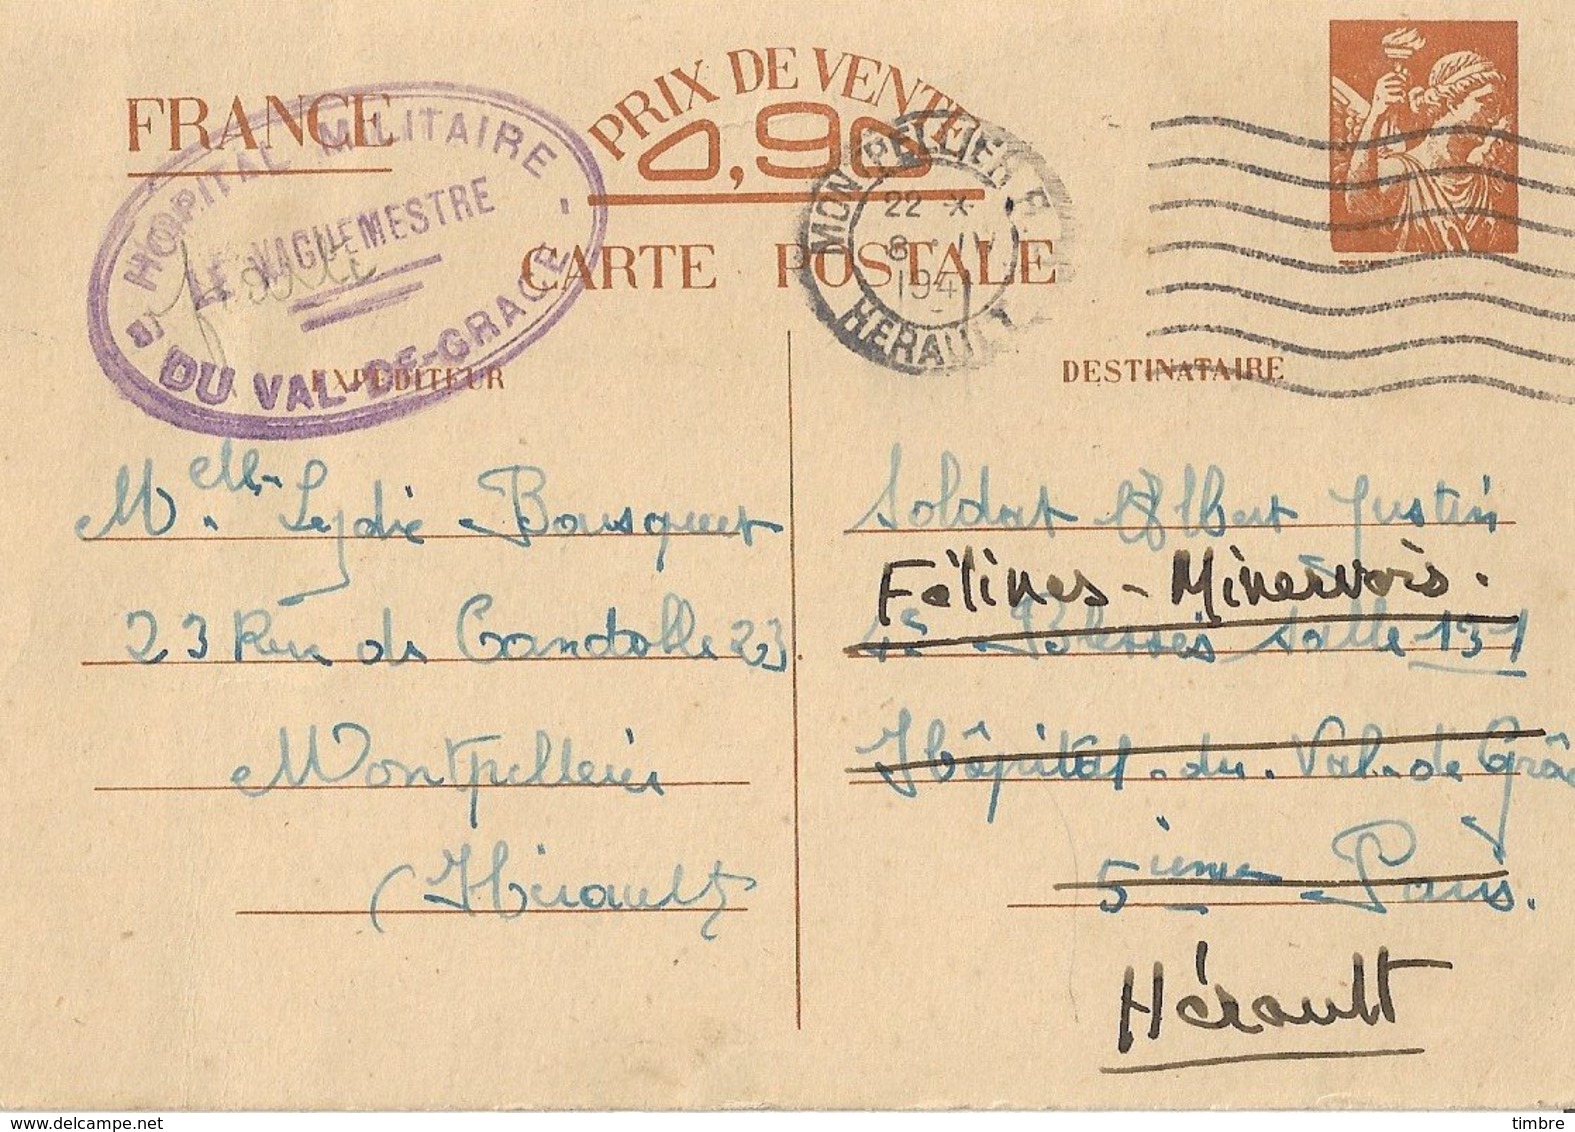 FRANCE
PRIX DE VENTE
0,90
CARTE POSTALE
HOPITAL MILITAIRE
LE VAGUEMESTRE
DU VAL-DE-GRACE
MONTPELLIER
22 *
8 IV
1941
HERAULT
EXPÉDITEUR
DESTINATAIRE
Melle Lydie Bousquet
23 Rue de Candolle 23
Montpellier
(Hérault)
Soldat Albert Justin
Félines-Minervois.
Blessés salle 131
Hôpital-du-Val-de Grâc
5ième Paris.
Hérault
delcampe.net
timbre